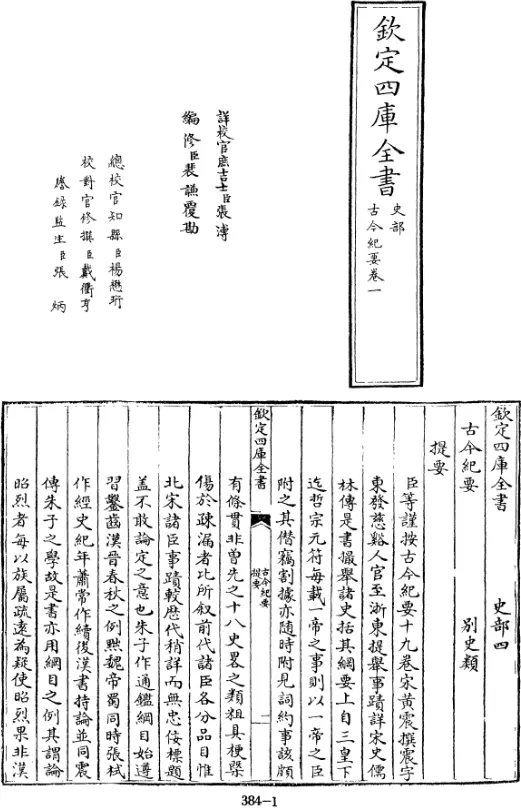 欽定四庫全書
史部
古今紀要卷一
詳校官庶吉士臣張溥
編修臣裴謙覆勘
總校官知縣臣楊懋珩
校對官修撰臣戴衢亨
謄錄監生臣張炳
欽定四庫全書 史部四
古今紀要 別史類
提要
臣等謹按古今紀要十九卷宋黃震撰震字
東發慈谿人官至浙東提舉事蹟詳宋史儒
林傳是書撮舉諸史括其綱要上自三皇下
迄哲宗元符每載一帝之事則以一帝之臣
附之其僭竊割據亦隨時附見詞約事該頗
欽定四庫全書
古今紀要
提要
一
有條貫非曾先之十八史畧之類粗具梗槩
傷於疎漏者比所叙前代諸臣各分品目惟
北宋諸臣事蹟較歷代稍詳而無忠佞標題
盖不敢論定之意也朱子作通鑑綱目始遵
習鑿齒漢晉春秋之例黜魏帝蜀同時張栻
作經史紀年蕭常作續後漢書持論並同震
傳朱子之學故是書亦用綱目之例其謂論
昭烈者每以族屬疏遠為疑使昭烈果非漢
384-1